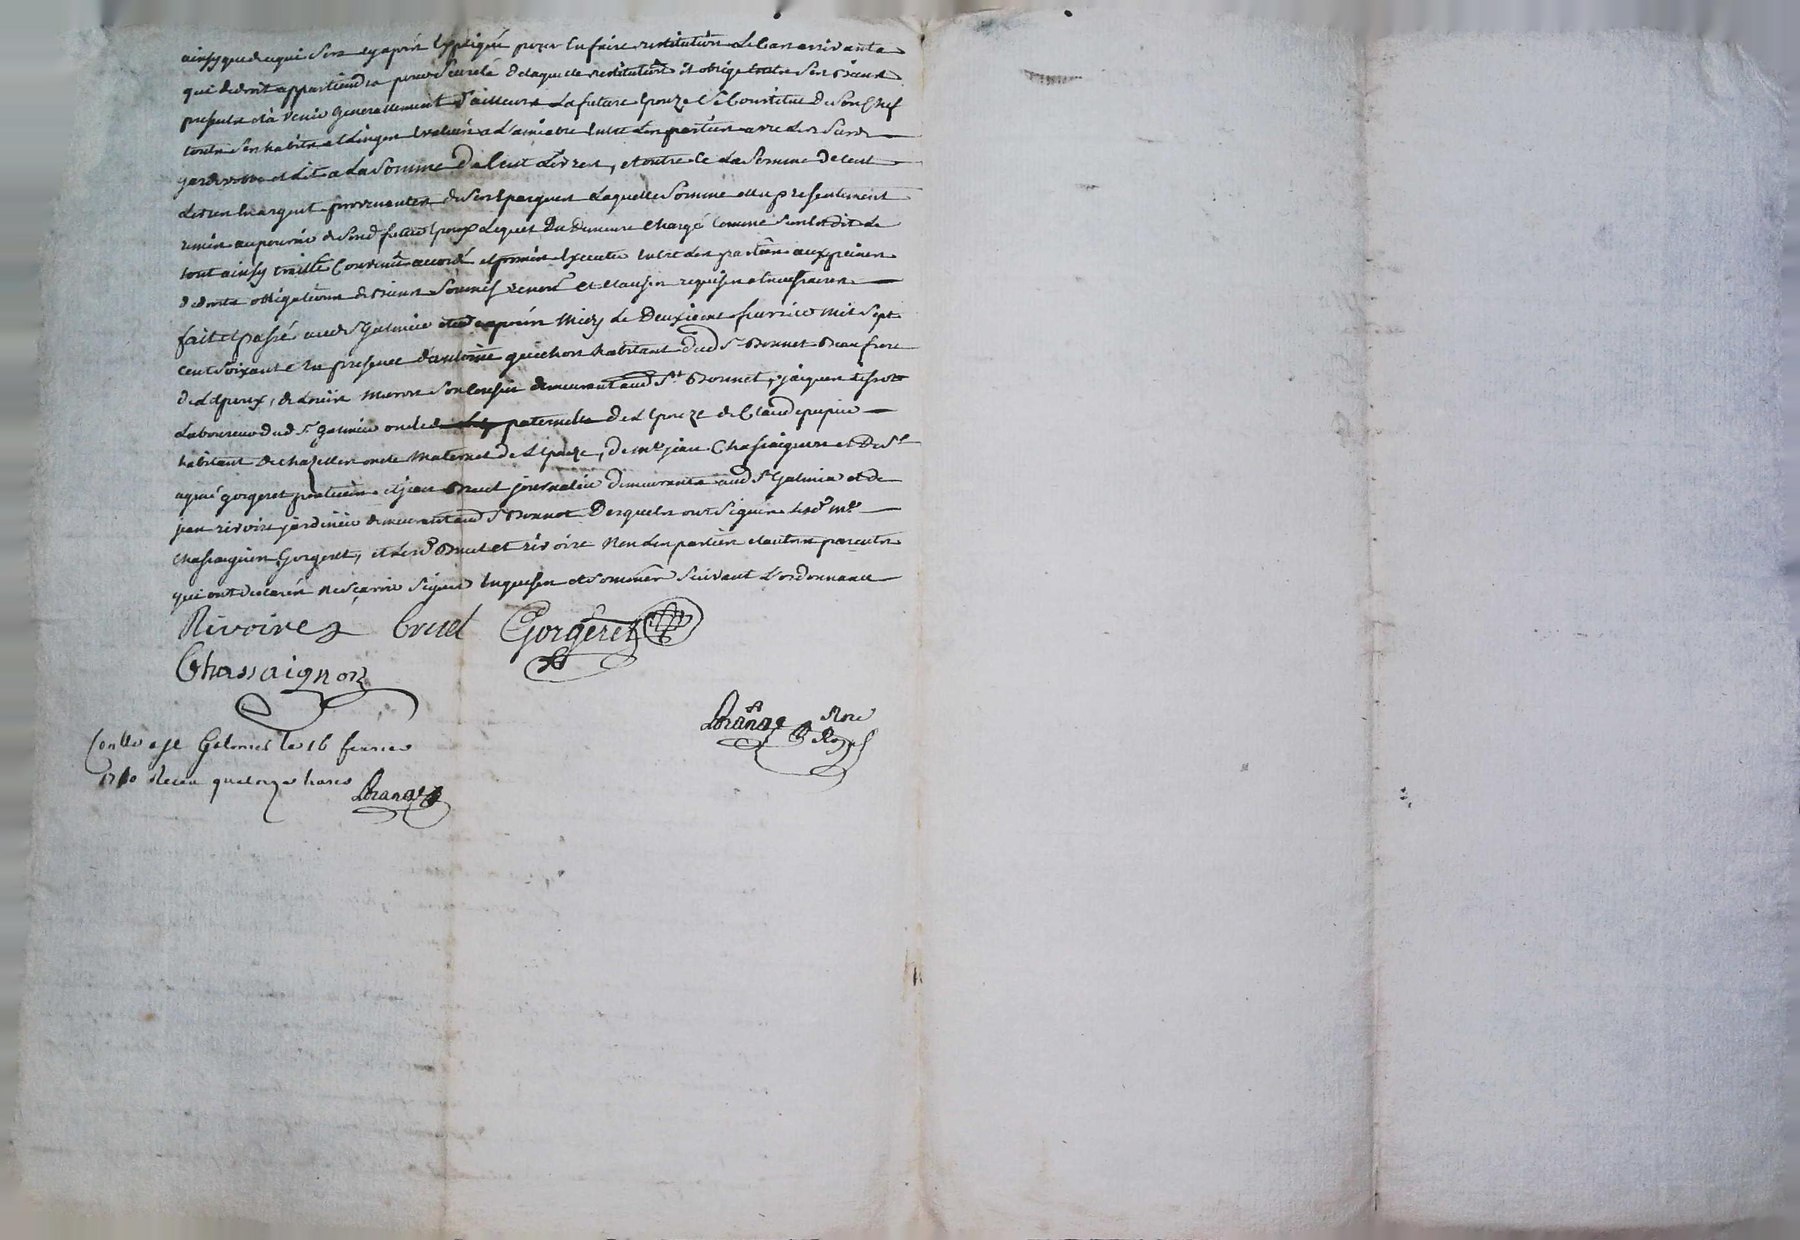 ainsy que de ce qui sera cy apres Expliqué pour En faire restitution Le Cas arrivant a
qui de droit appartiendra pour Seureté de laquelle restitution il oblige toutes Ses Biens
presents et à venir generallement d'ailleurs La future Epouze Se Constitue de Son Chef
touts Ses habits et Linges Evalués a L'amiable Entre Les parties avec Les Susd
garderobe et Lit a La Somme De Cent Livres, et outre Ce La Somme De Cent
Livres En argent provenantes de Ses Epargnes Laquelle Somme Elle a presentement
remise au pouvoir de Sond futur Epoux Lequel En Demeure Chargé Comme Sus Est dit Le
tout ainsy traitté Convenu accordé et promis Executer Entre Les parties aux peines
de droits obligations de Biens Soumis renon et Clauses requises et necessaires
fait et passé aud St Galmier Etude apres Midy Le Deuxieme fevrier Mil Sept
Cent Soixante En presence d'antoine guichon habitant dud St Bonnet Beaufrere
de L'Epoux, de Louis Meron Son Cousin demeurant aud St Bonnet, jacques
Laboureur dud St galmier oncle paternelle de L'Epouze de Claude pupier
habitant de Chazelles oncle Maternel de L'Epouze, de me jean Chassaignon et De Sr
aymé gorgeret praticien et jean Bruel journalier demeurants aud St Galmier et de
jean rivoire jardinier demeurant aud St Bonnet Desquels ont Signés Lesd me
Chassaignon Gorgeret, et Lesd Bruel et rivoire Non Les parties et autres presents
qui ont declarés ne Sçavoir Signer Enquises et Sommés Suivant L'ordonnance
Rivoire Bruel Gorgeret
Chassaignon
Lorange Nore Royal
Conllé a St Galmier le 16 fevrier
1760 Receu quatorze livres Lorange